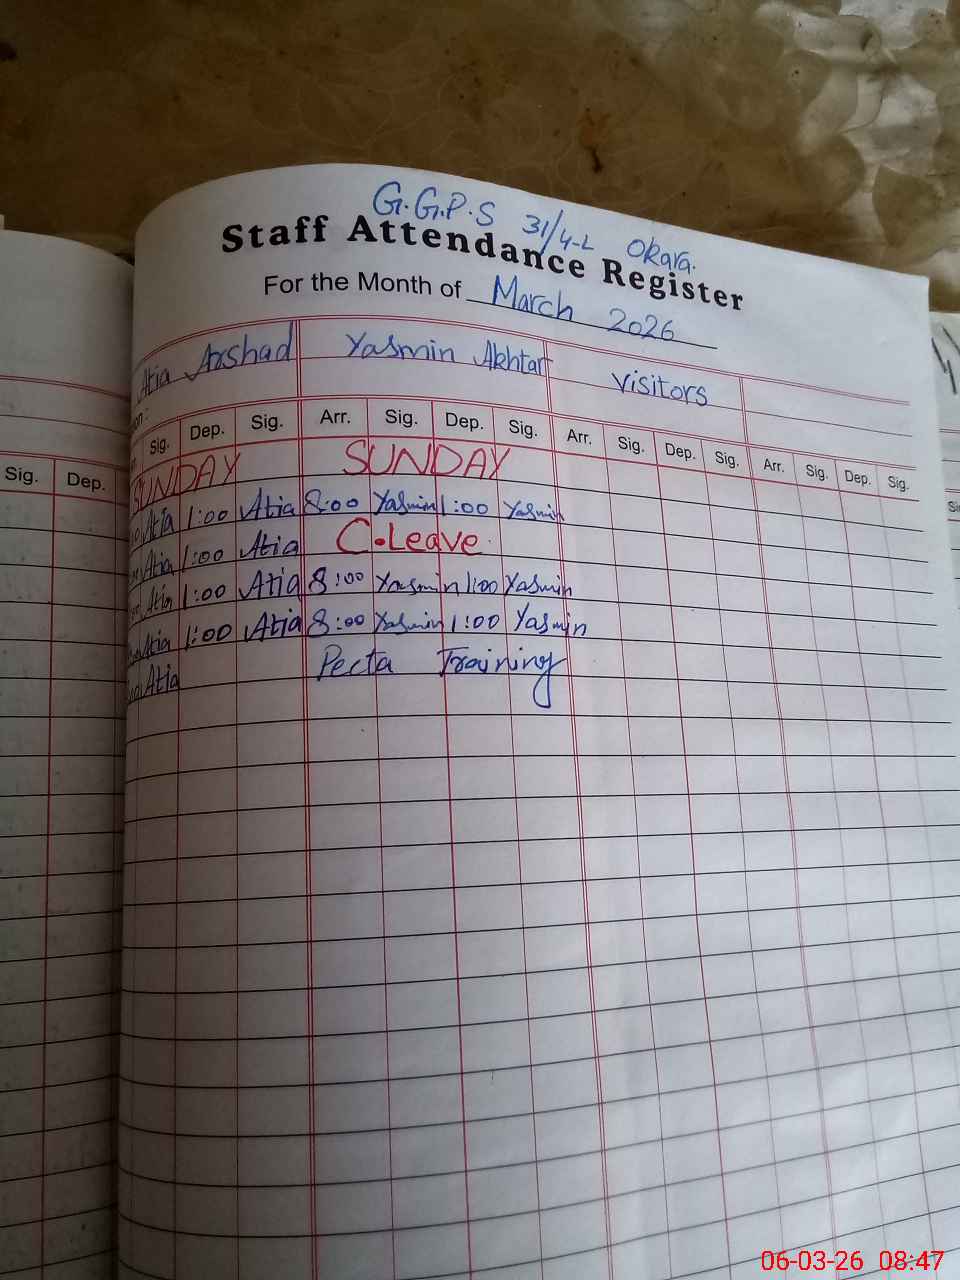 G.G.P.S 31/4-L Okara.
Staff Attendance Register
For the Month of March 2026
Atia Arshad Yasmin Akhtar Visitors
Sig. Dep. Sig. Arr. Sig. Dep. Sig. Arr. Sig. Dep. Sig. Arr. Sig. Dep. Sig.
Sig. Dep.
SUNDAY SUNDAY
Atia 1:00 Atia 8:00 Yasmin 1:00 Yasmin
Atia 1:00 Atia C.Leave
Atia 1:00 Atia 8:00 Yasmin 1:00 Yasmin
Atia 1:00 Atia 8:00 Yasmin 1:00 Yasmin
Atia Pecta Training
06-03-26 08:47